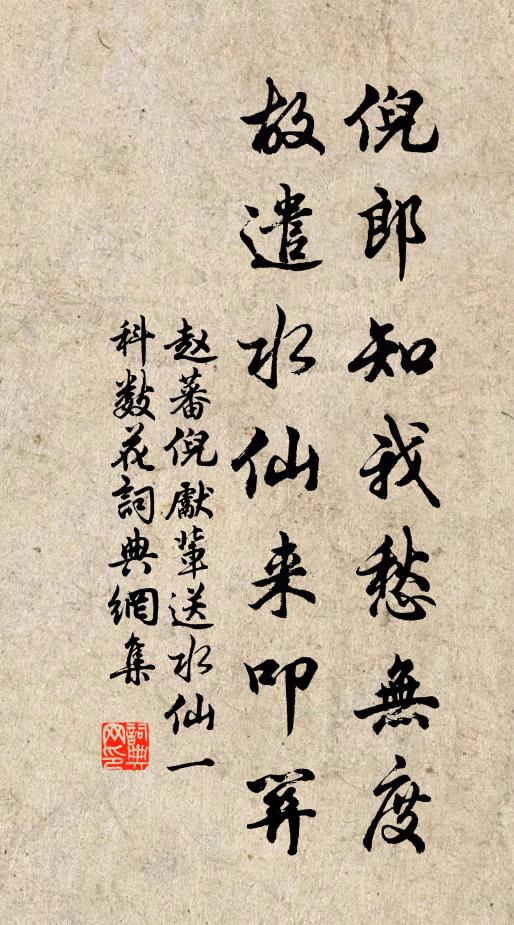 倪郎知我愁無度
故遣水仙来叩關
赵蕃倪獻輩送水仙一
科數花詞典網集
詞典
网印